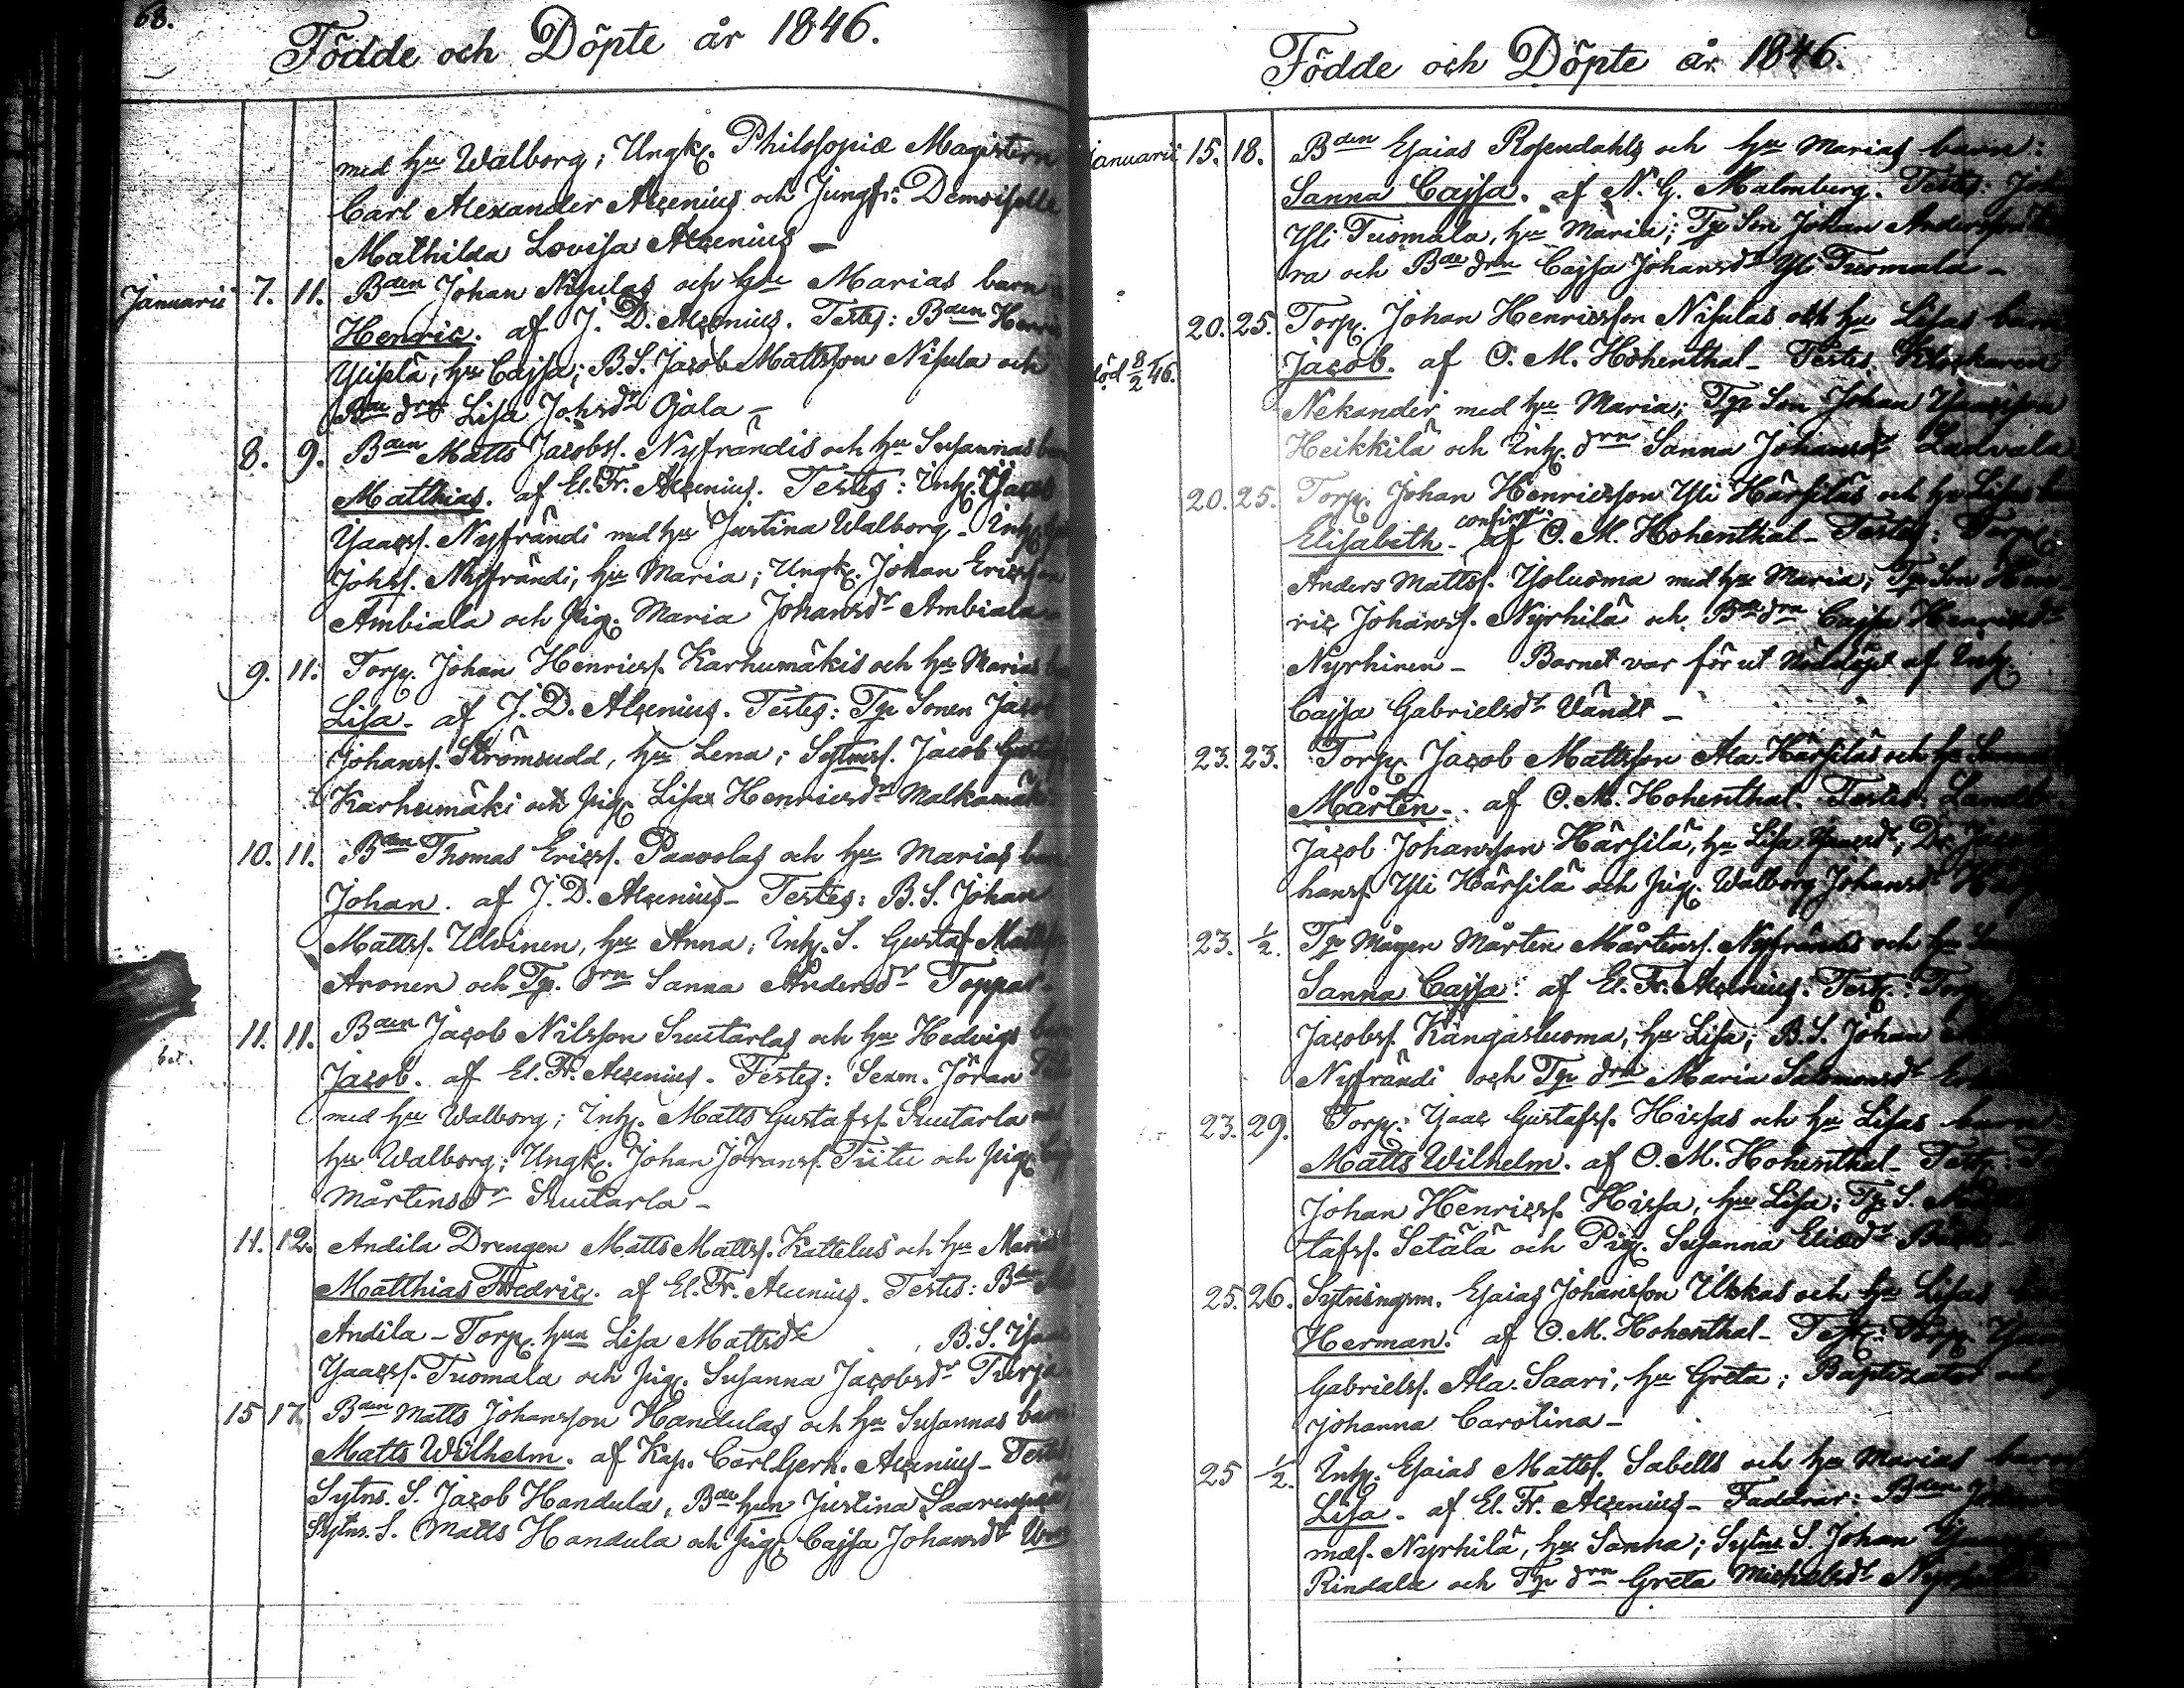 68.
Födde och Döpte år 1846.
med hu Walborg; Ungk. Philosopiæ Magistern
Carl Alexander Alcenius och Jungfr: Demoiselle
Mathilda Lovisa Alcenius –
Januarii 7. 11. Bden Johan Nisulas och hu Marias barn
Henric. af J. D. Alcenius. Testes: Bden Henric
hu Cajsa; B.S. Jacob Mattsson Nisula och
Bde drn Lisa Johsdr Ojala –
8. 9. Bden Matts Jacobss. Nyfrändis och hu Susannas
Matthias. af El. Fr. Alcenius. Testes: Inh.
Isaacs. Nyfrändi med hu Justina Walborg – Inh.
Johss. Nyfrändi, hu Maria; Ungk. Johan Ericsson
Ambiala och pig. Maria Johansdr Ambiala –
9. 11. Torp. Johan Henricss. Karhumäkis och hu Marias
Lisa. af J. D. Alcenius. Testes: Tp Sonen Jacob
Johanss. Strömsudd, hu Lena; Sytnss. Jacob
Karhumäki och pig. Lisa Henricsdr Malkamäki
10. 11. Bden Thomas Ericss. Paavolas och hu Marias barn
Johan. af J. D. Alcenius – Testes: B. S. Johan
Mattss. Ulvinen, hu Anna; Inh. S. Gustaf
Aronen och Tp. drn Sanna Andersdr Toppar.
11. 11. Bden Jacob Nilsson Suutarlas och hu Hedvigs
Jacob. af El. Fr. Alcenius. Testes: Sexm. Jöran
med hu Walborg; Inh. Matts Gustafss. Suutarla
hu Walborg; Ungk. Johan Jöranss. Tiitu och pig.
Mårtensdr Suutarla –
11. 12. Andila Drengen Matts Mattss. Kattelus och hu
Matthias Fredric. af El. Fr. Alcenius. Testes:
Andila – Torp. hun Lisa Mattsdr B. S.
Isaacss. Tuomala och pig. Susanna Jacobsdr
15 17. Bden Matts Johansson Handulas och hu Susannas barn
Matts Wilhelm. af Kap. Carl Gerh. Alcenius – Testes
Sytns. S. Jacob Handula, Bde hun Justina
Sytns. S. Matts Handula och pig. Cajsa Johansdr
Födde och Döpte år 1846.
Januarii 15. 18. Bden Esaias Rosendahls och hu Marias barn:
Sanna Cajsa. af N. G. Malmberg. Testes:
Yli Tuomala, hu Maria; Tp Son Johan Andersson
ra och Bde drn Cajsa Johansdr Yli Tuomala –
20. 25. Torp. Johan Henricsson Nisulas och hu Lisas barn
död 8/2 46. Jacob. af O. M. Hohenthal – Testes: Klockaren
Nekander med hu Maria; Tp Son Johan
Heikkilä och Inh. drn Sanna Johansdr Ladvala
20. 25. Torp. Johan Henricsson Yli Härsiläs och hu Lisas
confirm.
Elisabeth – af O. M. Hohenthal – Testes: Torp.
Anders Mattss. Yoluoma med hu Maria; Tp Son Hen-
ric Johanss. Nyrhilä och Bde drn Cajsa Henricsdr
Nyrhinen – Barnet var förut Nöddöpt af Inh.
Cajsa Gabrielsdr
23. 23. Torp. Jacob Mattsson Ala Härsiläs och hu
Mårten. af O. M. Hohenthal. Testes:
Jacob Johansson Härsilä, hu Lisa
hanss. Yli Härsilä och pig. Walborg Johansdr
23. 1/2. Tp Mågen Mårten Mårtenss. Nyfrändis och hu
Sanna Cajsa. af El. Fr. Alcenius. Test.: Torp.
Jacobss. Kangasluoma, hu Lisa; B. S. Johan
Nyfrändi och Tp drn Maria Salomonsdr
23. 29. Torp. Isaac Gustafss. Hissas och hu Lisas barn
Matts Wilhelm. af O. M. Hohenthal – Test.:
Johan Henricss. Hissa, hu Lisa; Tp. S.
tafss. Setälä och Pig. Susanna
25. 26. Sytningsm. Esaias Johansson och hu Lisas
Herman. af O. M. Hohenthal – Test.: Torp.
Gabrielss. Ala Saari, hu Greta; Baptizator och
Johanna Carolina –
25 1/2. Inh. Esaias Mattss. Sabells och hu Marias barn
Lisa. af El. Fr. Alcenius – Faddrar: Bden
mass. Nyrhilä, hu Sanna; Sytns S. Johan
Rindala och Tp drn Greta Michelsdr